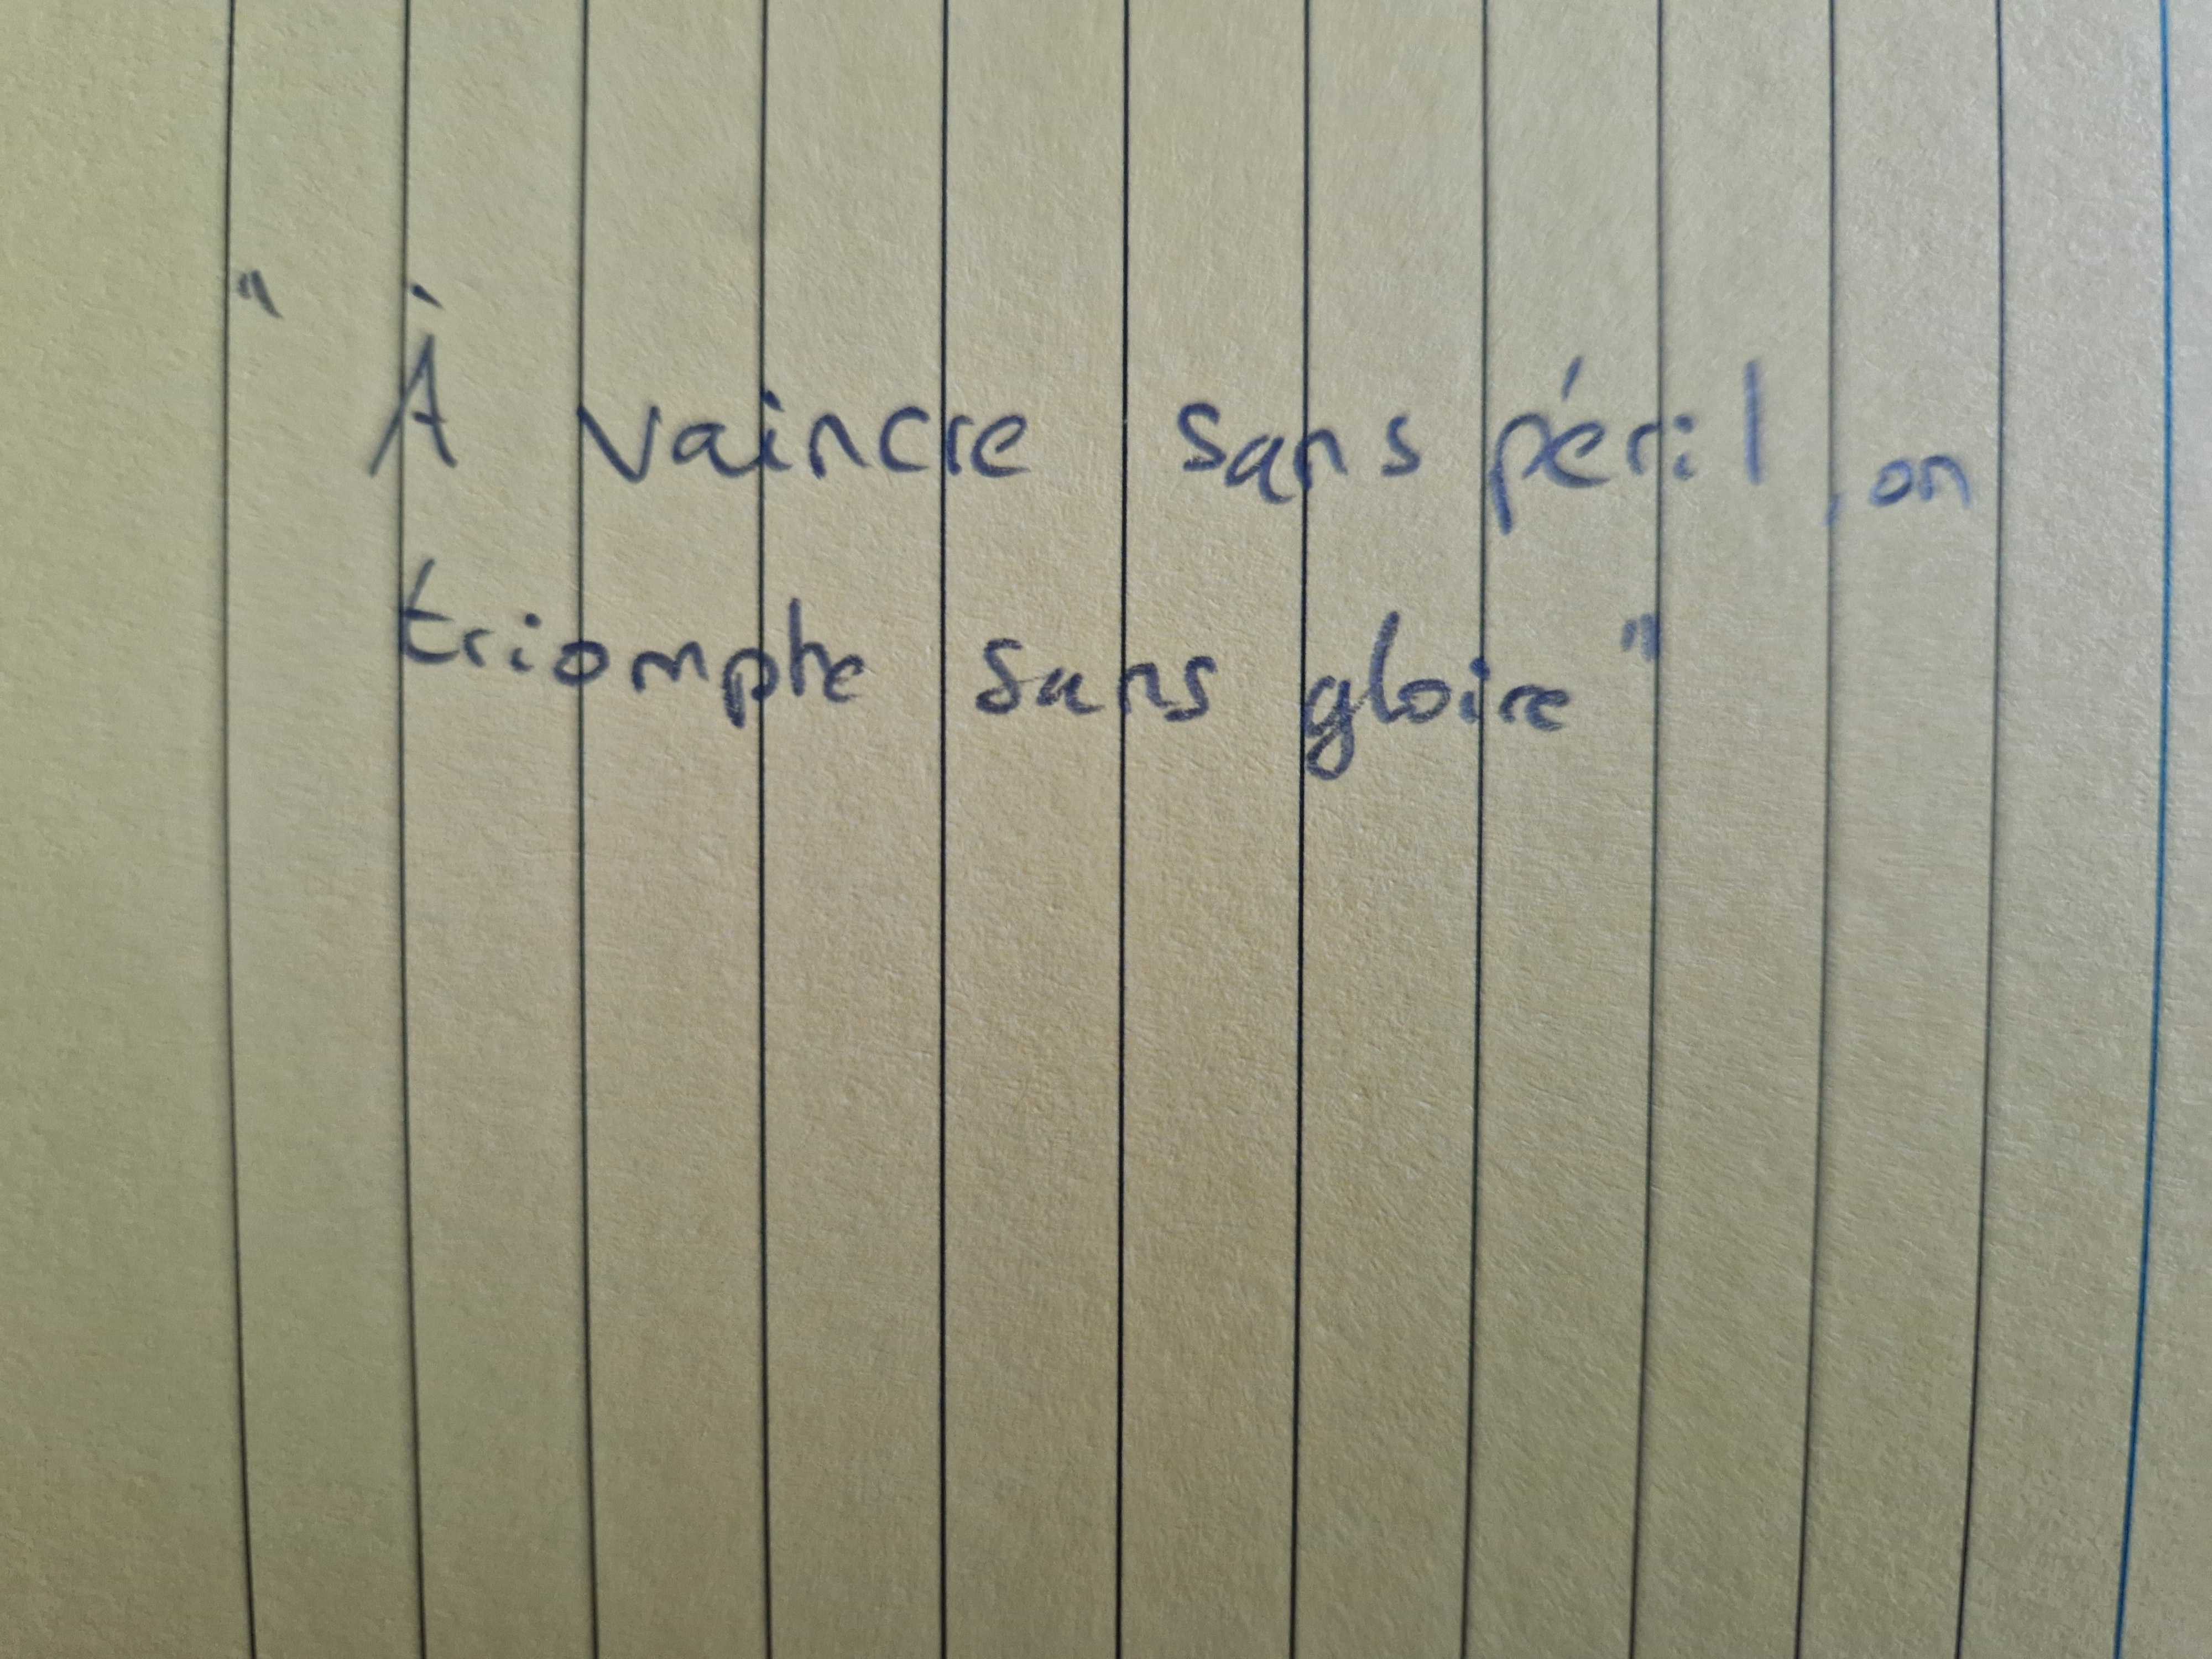 " À vaincre sans péril, on
triomphe sans gloire "